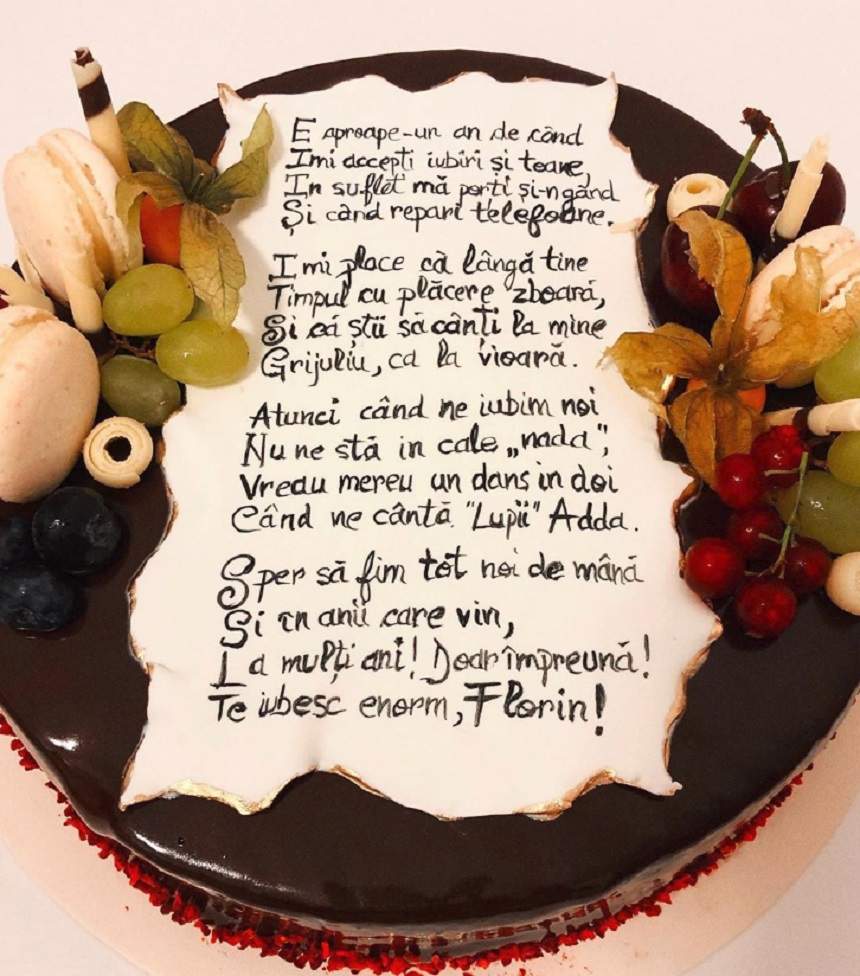 E aproape-un an de când
Imi accepti iubiri și toane,
In suflet mă porti și-n gând
Și când repari telefoane.
Imi place că lângă tine
Timpul cu plăcere zboară,
Și că știi să cânți la mine
Grijuliu, ca la vioară.
Atunci când ne iubim noi
Nu ne stă in cale „nada”,
Vreau mereu un dans in doi
Când ne cântă "Lupii" Adda.
Sper să fim tot noi de mână
Și în anii care vin,
La mulți ani! Doar împreună!
Te iubesc enorm, Florin!